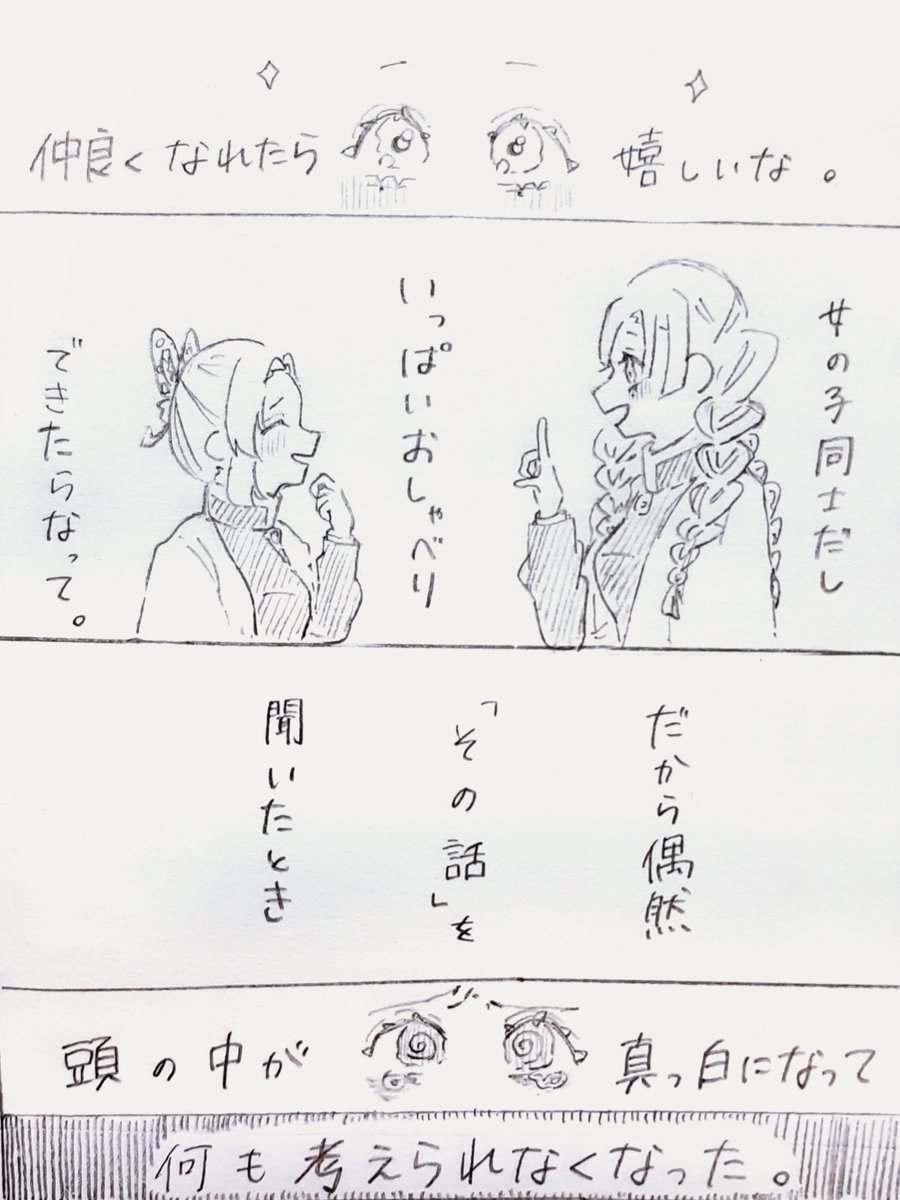 仲良くなれたら
嬉しいな。
女の子同士だし
いっぱいおしゃべり
できたらなって。
だから偶然
「その話」を
聞いたとき
頭の中が
真っ白になって
何も考えられなくなった。